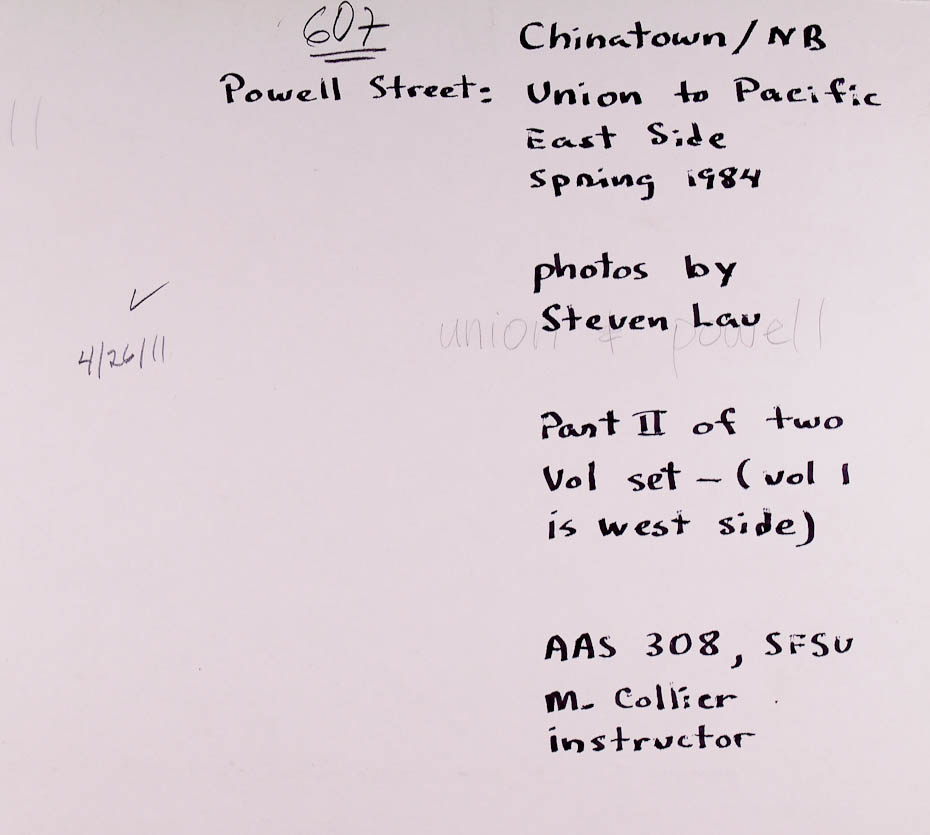 607
Chinatown / NB
Powell Street: Union to Pacific
East Side
Spring 1984
photos by
Steven Lau
union & powell
4/26/11
Part II of two
Vol set - (vol 1
is west side)
AAS 308, SFSU
M. Collier
instructor